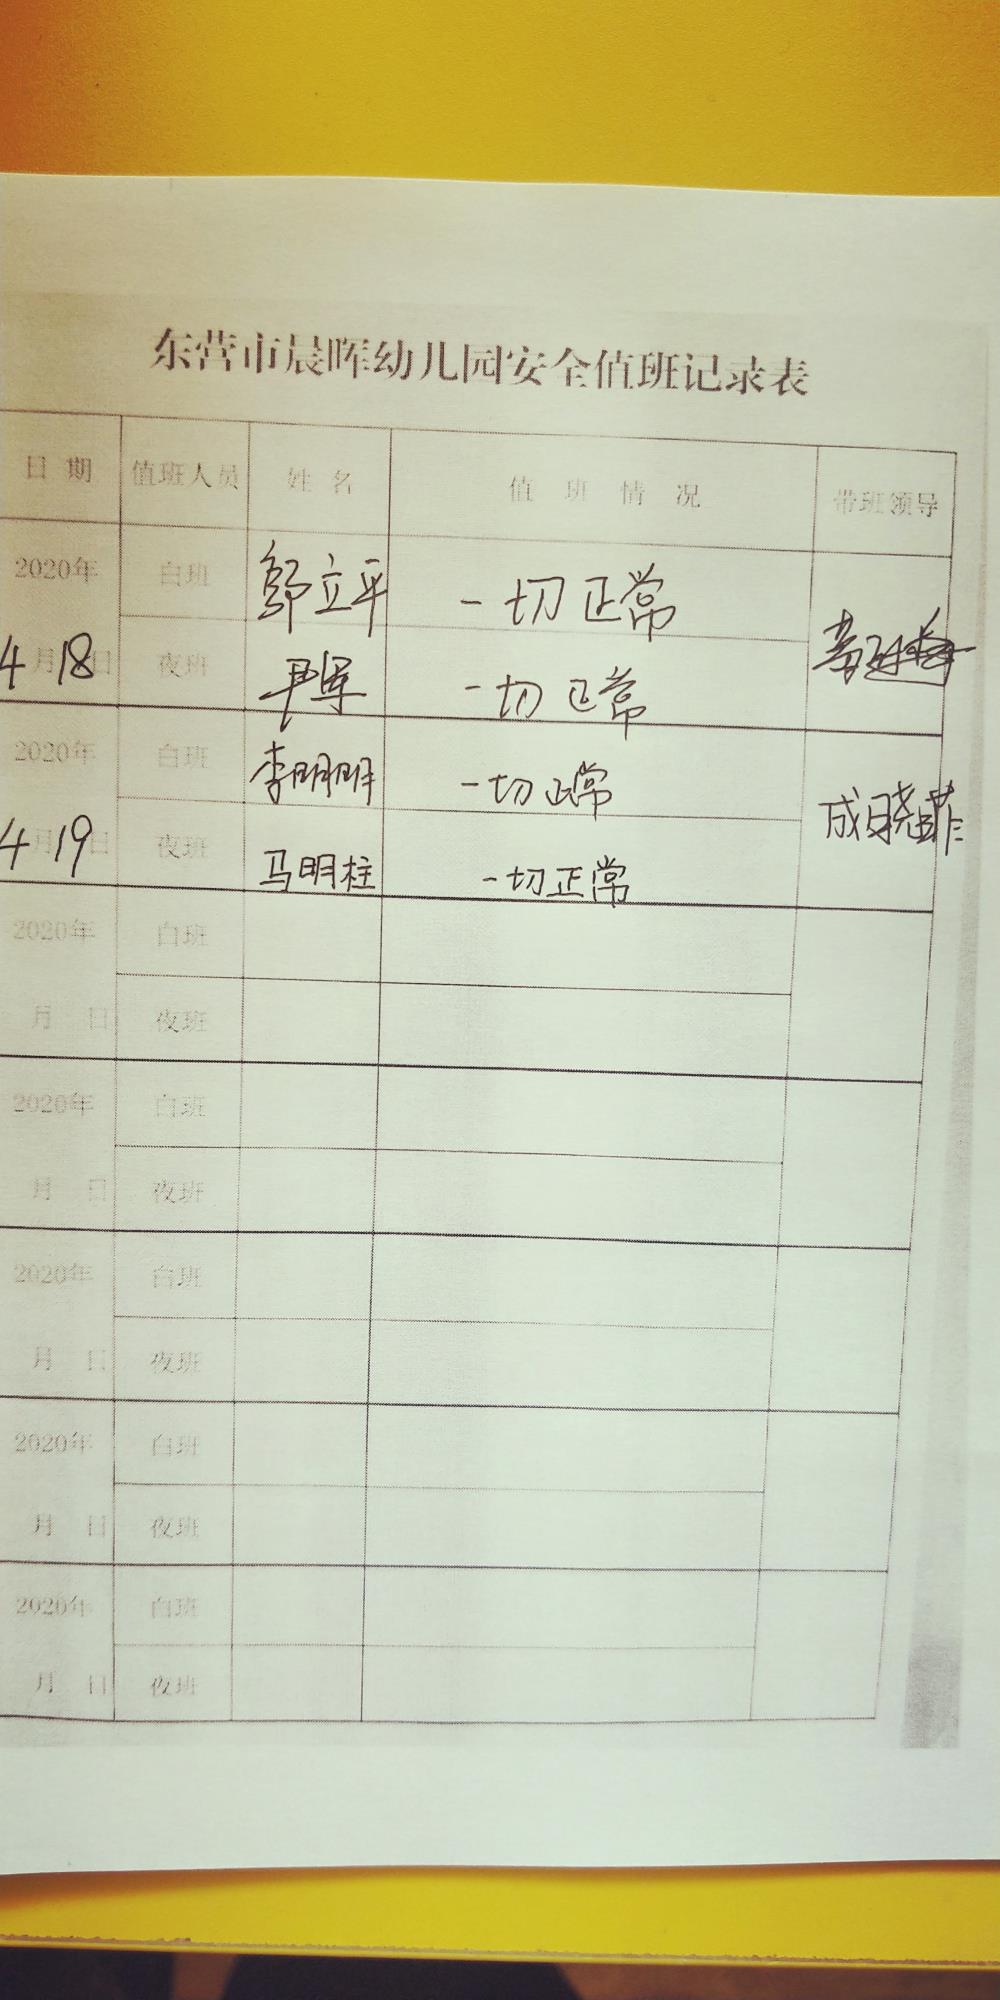 东营市晨晖幼儿园安全值班记录表
日期 值班人员 姓名 值班情况 带班领导
2020年 白班 邹立平 一切正常
4月18日 夜班 尹军 一切正常
2020年 白班 李明明 一切正常 成晓菲
4月19日 夜班 马明柱 一切正常
2020年 白班
月 日 夜班
2020年 白班
月 日 夜班
2020年 白班
月 日 夜班
2020年 白班
月 日 夜班
2020年 白班
月 日 夜班